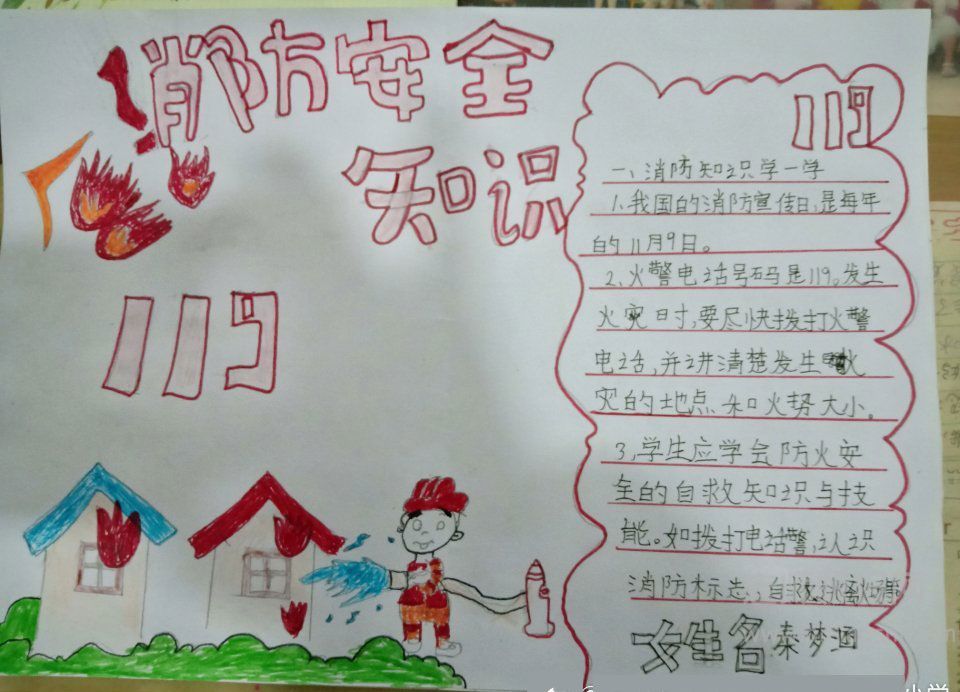 消防安全
知识
119
119
一、消防知识学一学
1、我国的消防宣传日,是每年
的11月9日。
2、火警电话号码是119。发生
火灾时,要尽快拨打火警
电话,并讲清楚发生火
灾的地点和火势大小。
3,学生应学会防火安
全的自救知识与技
能。如拨打电话警,认识
消防标志,自救逃离火场等
姓名 秦梦涵
小学